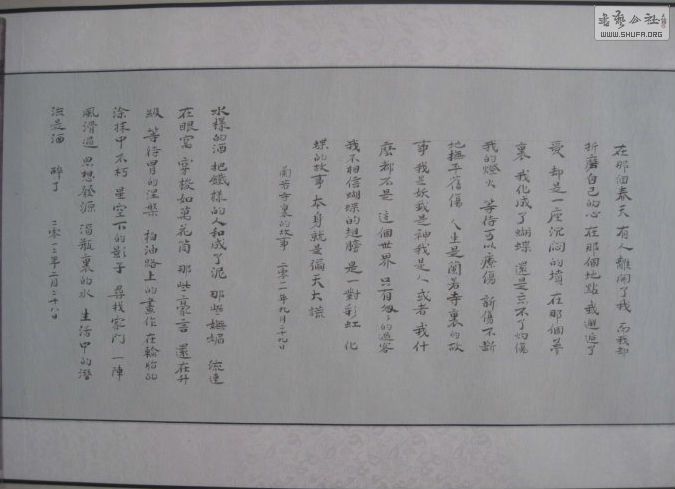 在那個春天 有人離開了我 而我卻
折磨自己的心 在那個地點 我邂逅了
愛 卻是一座沉悶的墳 在那個夢
裏 我化成了蝴蝶 還是忘不了灼傷
我的燈火 等待可以療傷 新傷不斷
地撫平舊傷 人生是蘭若寺裏的故
事 我是妖 我是神 我是人 或者 我什
麼都不是 這個世界 只有匆匆的過客
我不相信蝴蝶的翅膀 是一對彩虹 化
蝶的故事 本身就是彌天大謊
蘭若寺裏的故事 二零一二年九月二十九日
水樣的酒 把鐵樣的人和成了泥 那些嫵媚 流連
在眼窩 穿梭如萬花筒 那些豪言 還在升
級 等待胃的涅槃 柏油路上的畫作 在輪胎的
塗抹中不朽 星空下的影子 尋找家門 一陣
風滑過 思想發源 渴瓶裏的水 生活中的潛
流是酒 醉了 二零一三年二月二十八日
書藝公社
WWW.SHUFA.ORG